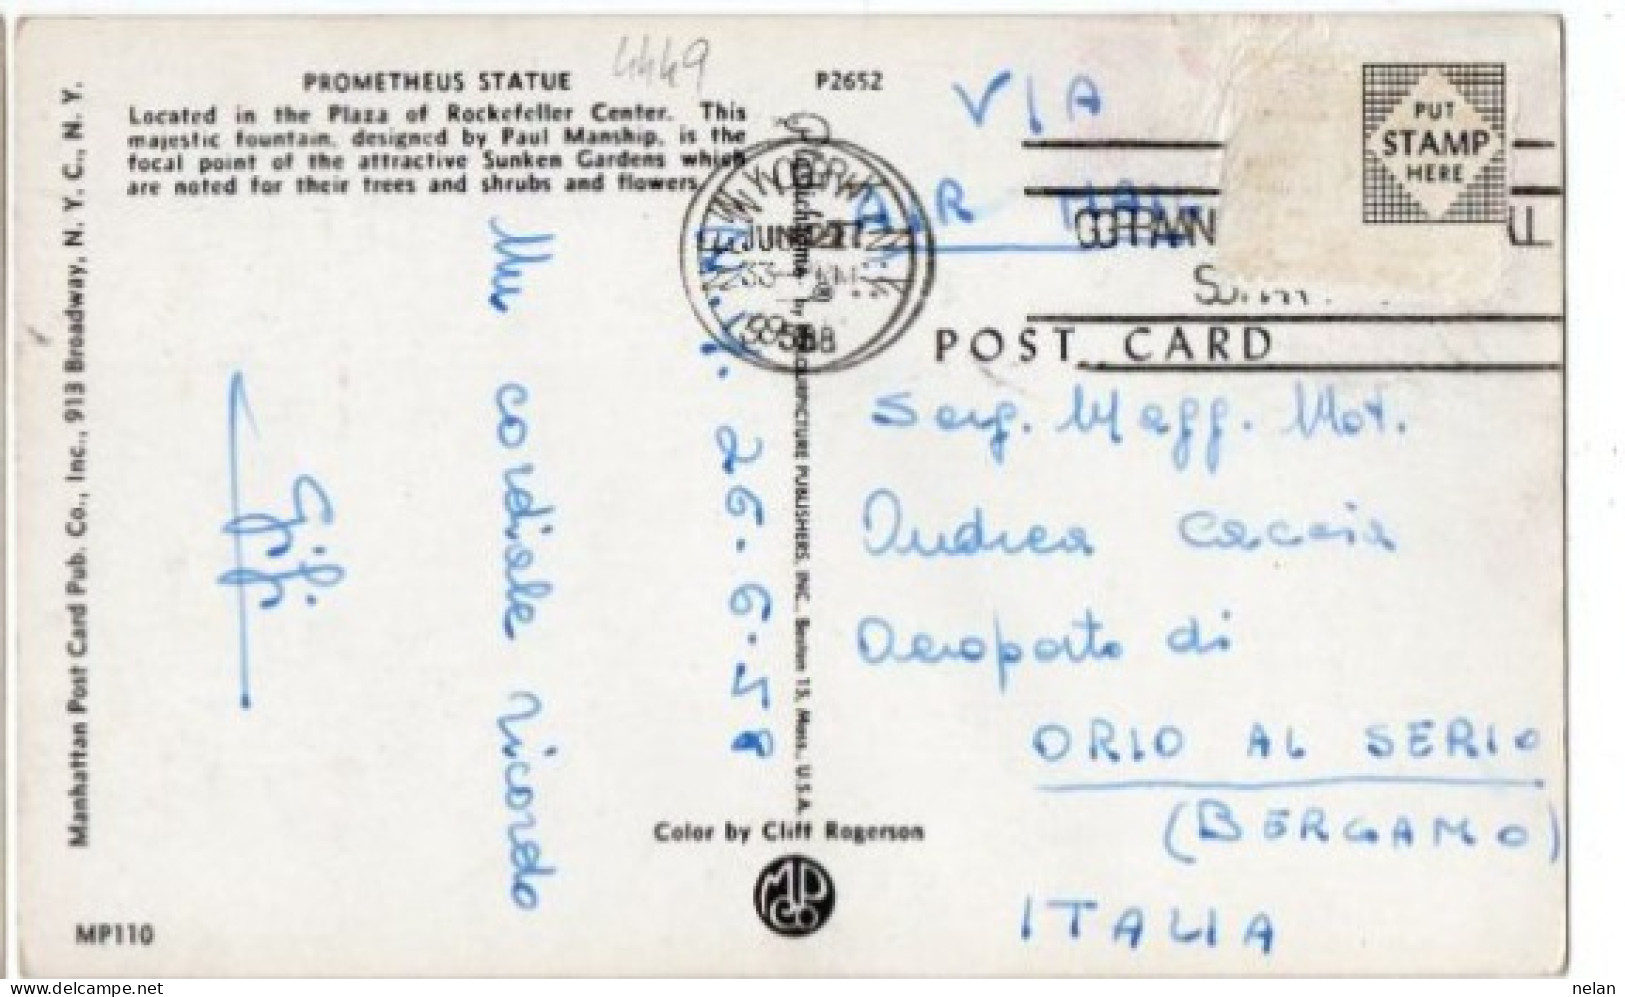 4449
PROMETHEUS STATUE
P2652
Located in the Plaza of Rockefeller Center. This
majestic fountain, designed by Paul Manship, is the
focal point of the attractive Sunken Gardens which
are noted for their trees and shrubs and flowers.
VIA
AIR MAIL
PUT
STAMP
HERE
JUN 27
1958
POST CARD
Serg. Magg. Mot.
Andrea Caccia
Aeroporto di
ORIO AL SERIO
(BERGAMO)
ITALIA
N.Y. 26.6.58
Un cordiale ricordo
Manhattan Post Card Pub. Co., Inc., 913 Broadway, N. Y. C., N. Y.
by COLOURPICTURE PUBLISHERS, INC. Boston 15, Mass. U.S.A.
Color by Cliff Rogerson
MP110
nelan